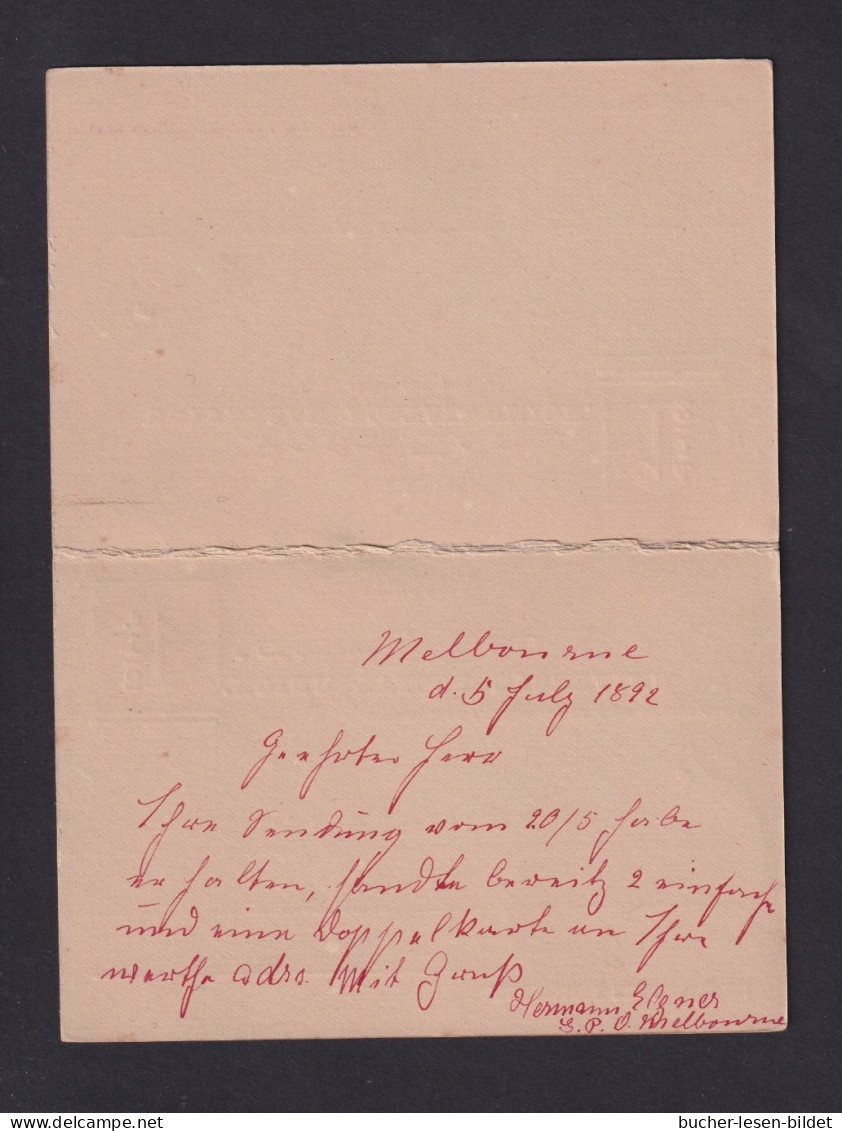 Melbourne
d. 5 July 1892
Geehrter Herr
Ihre Sendung vom 20/5 habe
erhalten, sandte bereitz 2 einfache
und eine Doppelkarte an Ihre
werthe adrs. Mit Gruß
Hermann Elsner
G. P. O. Melbourne
bucher-lesen-bildet